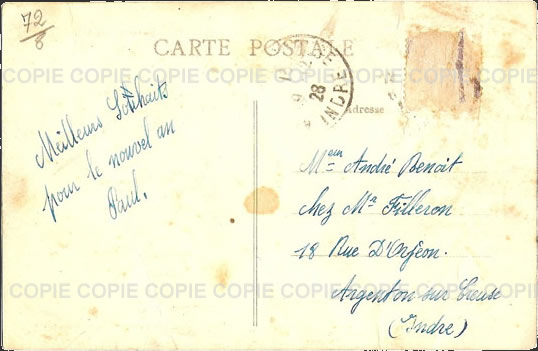 72
8
CARTE POSTALE
28
INDRE
Adresse
Meilleurs Souhaits
pour le nouvel an
Paul.
Meur André Benoit
chez Mr Filleron
18 Rue D'Orfèon.
Argenton sur Creuse
(Indre)
COPIE COPIE COPIE COPIE COPIE COPIE COPIE
COPIE COPIE COPIE COPIE COPIE COPIE COPIE
COPIE COPIE COPIE COPIE COPIE COPIE COPIE